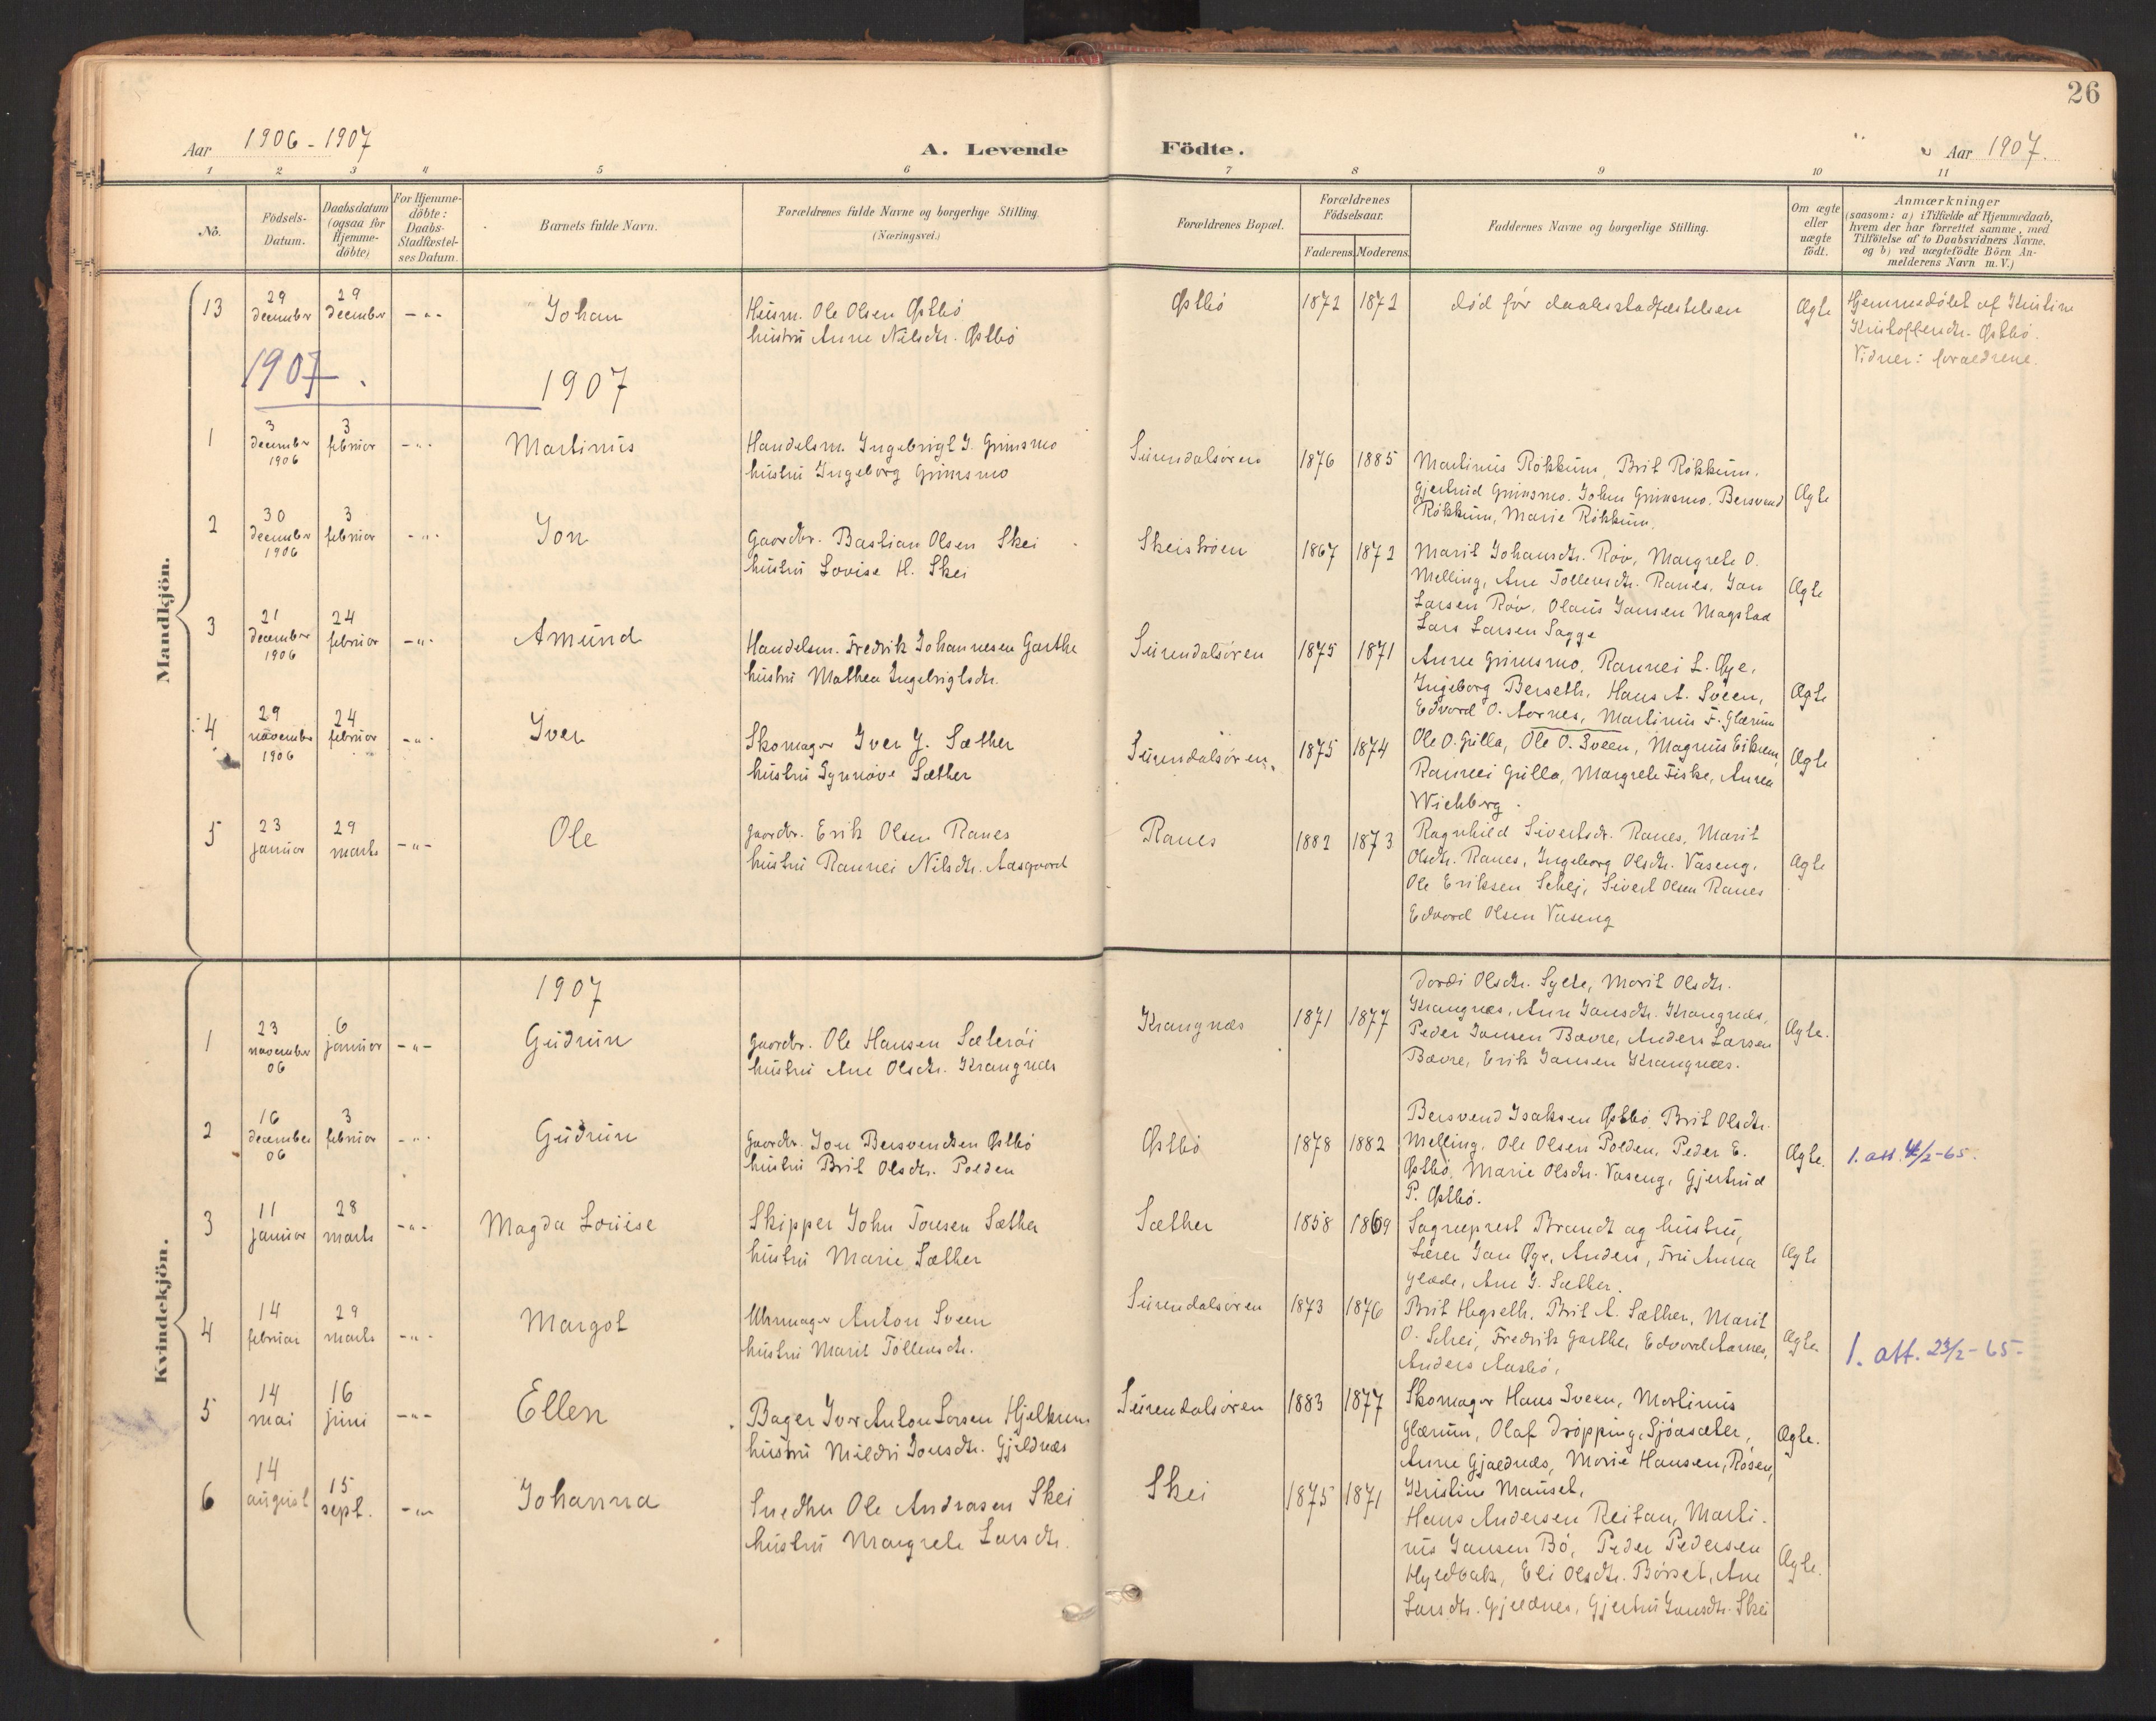 26
Aar 1906-1907
A. Levende Födte.
Aar 1907.
1 2 3 4 5 6 7 8 9 10 11
No.
Födsels-
Datum.
Daabsdatum
(ogsaa for
Hjemme-
döbte)
For Hjemme-
döbte:
Daabs-
Stadfæstel-
ses Datum.
Barnets fulde Navn.
Forældrenes fulde Navne og borgerlige Stilling.
(Næringsvei.)
Forældrenes Bopæl.
Forældrenes
Födselsaar.
Faderens. Moderens.
Faddernes Navne og borgerlige Stilling.
Om ægte
eller
uægte
födt.
Anmærkninger
(saasom: a) i Tilfælde af Hjemmedaab,
hvem der har forrettet samme, med
Tilföielse af to Daabsvidners Navne,
og b) ved uægtefödte Börn An-
melderens Navn m. V.)
Mandkjön.
13
29
december
29
december
-"-
Johan
Husm. Ole Olsen Østbö
hustru Anne Nilsdtr. Østbö
Østbö
1872 1872
död för daabsstadfæstelsen
Ægte
Hjemmedöbt af Kristine
Kristoffersdtr. Østbö.
Vidner: forældrene.
1907.
1907
1
3
december
1906
3
februar
-"-
Martinus
Handelsm. Ingebrigt J. Grimsmo
hustru Ingeborg Grimsmo
Surendalsören
1876 1885
Martinus Rökkum, Brit Rökkum.
Gjertrud Grimsmo. John Grimsmo. Bersvend
Rökkum, Marie Rökkum.
Ægte
2
30
december
1906
3
februar
-"-
Jon
Gaardbr. Bastian Olsen Skei
hustru Lovise H. Skei
Skeiströen
1867 1872
Marit Johansdtr. Röv, Margrete O.
Melling, Ane Tollevsdtr. Ranes, Jon
Larsen Röv, Olaus Jansen Magstad
Lars Larsen Sagge
Ægte
3
21
december
1906
24
februar
-"-
Amund
Handelsm. Fredrik Johannesen Garthe
hustru Mathea Ingebrigtsdtr.
Surendalsören
1875 1871
Anne Grimsmo, Rannei L. Øye,
Ingeborg Berseth, Hans A. Sveen,
Edvard O. Aarnes, Martinus F. Glærum
Ægte
4
29
november
1906
24
februar
-"-
Iver
Skomager Iver J. Sæther
hustru Synnöve Sæther
Surendalsören
1875 1874
Ole O. Gulla, Ole O. Sveen, Magnus Eikrem,
Rannei Gulla, Margrete Fiske, Annea
Wichberg.
Ægte
5
23
januar
29
marts
-"-
Ole
Gaardbr. Erik Olsen Ranes
hustru Rannei Nilsdtr. Aasgaard
Ranes
1882 1873
Ragnhild Sivertsdr. Ranes, Marit
Olsdtr. Ranes, Ingeborg Olsdtr. Vaseng.
Ole Eriksen Schej, Sivert Olsen Ranes
Edvard Olsen Vaseng
Ægte
Kvindekjön.
1907
1
23
november
06
6
januar
-"-
Gudrun
Gaardbr. Ole Hansen Sæteröi
hustru Ane Olsdtr. Krangnæs
Krangnæs
1871 1877
Dordi Olsdtr. Sylte, Marit Olsdtr.
Krangnæs, Ane Jonsdtr. Krangnæs,
Peder Jansen Bævre, Anders Larsen
Bævre, Erik Jansen Krangnæs.
Ægte.
2
16
december
06
3
februar
-"-
Gudrun
Gaardbr. Jon Bersvendsen Østbö
hustru Brit Olsdtr. Polden
Østbö
1878 1882
Bersvend Isaksen Østbö, Brit Olsdtr.
Melling, Ole Olsen Polden, Peder E.
Østbö, Marie Olsdtr. Vaseng, Gjertrud
P. Østbö.
Ægte.
1. att. 4/2-65.
3
11
januar
28
marts
-"-
Magda Louise
Skipper John Tonesen Sæther
hustru Marie Sæther
Sæther
1858 1869
Sogneprest Brandt og hustru,
Lærer Jon Øye, Anders, Fru Anna
Gløde, Ane J. Sæther.
Ægte
4
14
februar
29
marts
-"-
Margot
Uhrmager Anton Sveen
hustru Marit Tollevsdtr.
Surendalsören
1873 1876
Brit Hegseth, Brit A. Sæther, Marit
O. Schei, Fredrik Garthe, Edvard Aarnes,
Anders Aasbö.
Ægte
1. att. 23/2-65-
5
14
mai
16
juni
-"-
Ellen
Bager Ivar Anton Larsen Hjelkrem
hustru Mildri Jonsdtr. Gjeldnæs
Surendalsören
1883 1877
Skomager Hans Sveen, Martinus
Glærum, Olaf Dröpping, Sjöasæter,
Anne Gjældnæs, Marie Hansen, Rösen,
Kristine Mauset.
Ægte.
6
14
august
15
sept.
-"-
Johanna
Snedker Ole Andrasen Skei
hustru Margrete Larsdtr.
Skei
1875 1871
Hans Andersen Reitan, Marti-
nus Jansen Bö, Peder Pedersen
Hyldbak, Eli Olsdtr. Börset, Ane
Larsdtr. Gjeldnes, Gjertru Jonsdtr. Skei
Ægte.